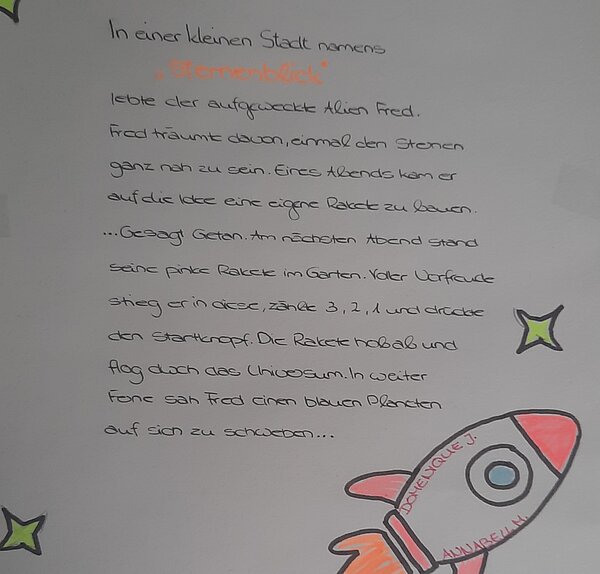 In einer kleinen Stadt namens
„Sternenblick“
lebte der aufgeweckte Alien Fred.
Fred träumte davon, einmal den Sternen
ganz nah zu sein. Eines Abends kam er
auf die Idee eine eigene Rakete zu bauen.
...Gesagt Getan. Am nächsten Abend stand
seine pinke Rakete im Garten. Voller Vorfreude
stieg er in diese, zählte 3, 2, 1 und drückte
den Startknopf. Die Rakete hob ab und
flog durch das Universum. In weiter
Ferne sah Fred einen blauen Planeten
auf sich zu schweben...
DOMENIQUE J.
ANNABELL M.